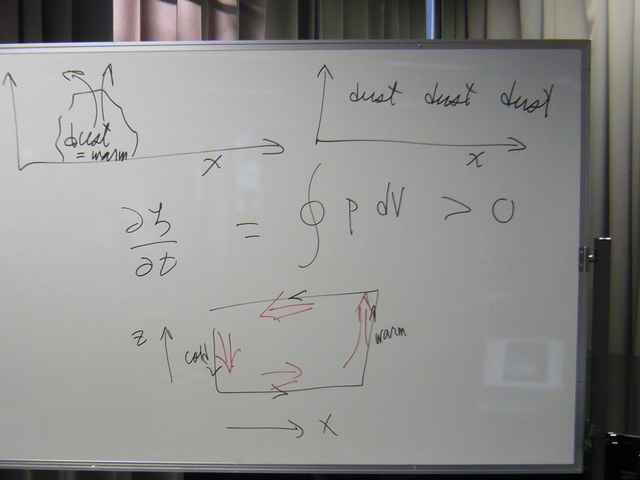 dust
= warm
x
dust dust dust
x
∂ζ/∂t = ∮ p dV > 0
z
cold
warm
x